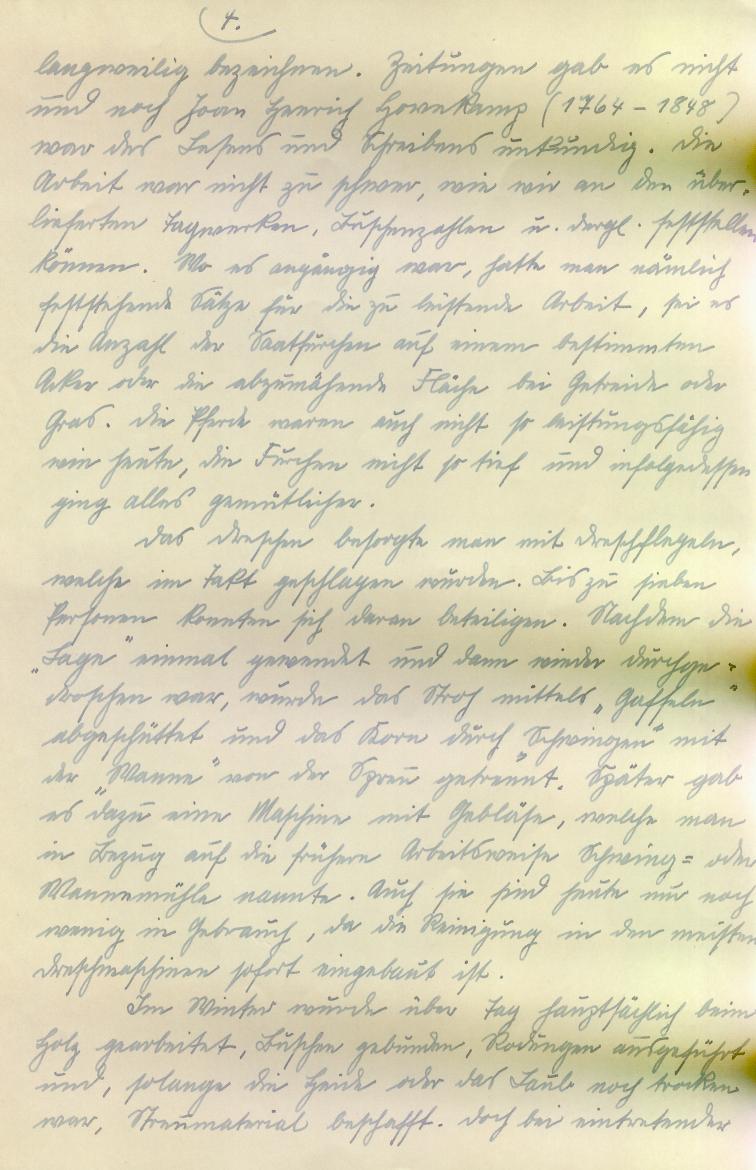 4.
langweilig bezeichnen. Zeitungen gab es nicht
und noch Joan Henrich Hovekamp (1764 – 1848)
war des Lesens und Schreibens unkundig. Die
Arbeit war nicht zu schwer, wie wir an den über-
lieferten Tagwerken, Buschenzahlen u. dergl. feststellen
können. Wo es angängig war, hatte man nämlich
feststehende Sätze für die zu leistende Arbeit, sei es
die Anzahl der Saatfurchen auf einem bestimmten
Acker oder die abzumähende Fläche bei Getreide oder
Gras. Die Pferde waren auch nicht so leistungsfähig
wie heute, die Furchen nicht so tief und infolgedessen
ging alles gemütlicher.
Das Dreschen besorgte man mit Dreschflegeln,
welche im Takt geschlagen wurden. Bis zu sieben
Personen konnten sich daran beteiligen. Nachdem die
„Lage" einmal gewendet und dann wieder durchge-
droschen war, wurde das Stroh mittels „Gaffeln"
abgeschüttet und das Korn durch „Schwingen" mit
der „Wanne" von der Spreu getrennt. Später gab
es dazu eine Maschine mit Gebläse, welche man
in Bezug auf die frühere Arbeitsweise Schwing= oder
Wannemühle nannte. Auch sie sind heute nur noch
wenig in Gebrauch, da die Reinigung in den meisten
Dreschmaschinen sofort eingebaut ist.
Im Winter wurde über Tag hauptsächlich beim
Holz gearbeitet, Buschen gebunden, Rodungen ausgeführt
und, solange die Heide oder das Laub noch trocken
war, Streumaterial beschafft. Doch bei eintretender